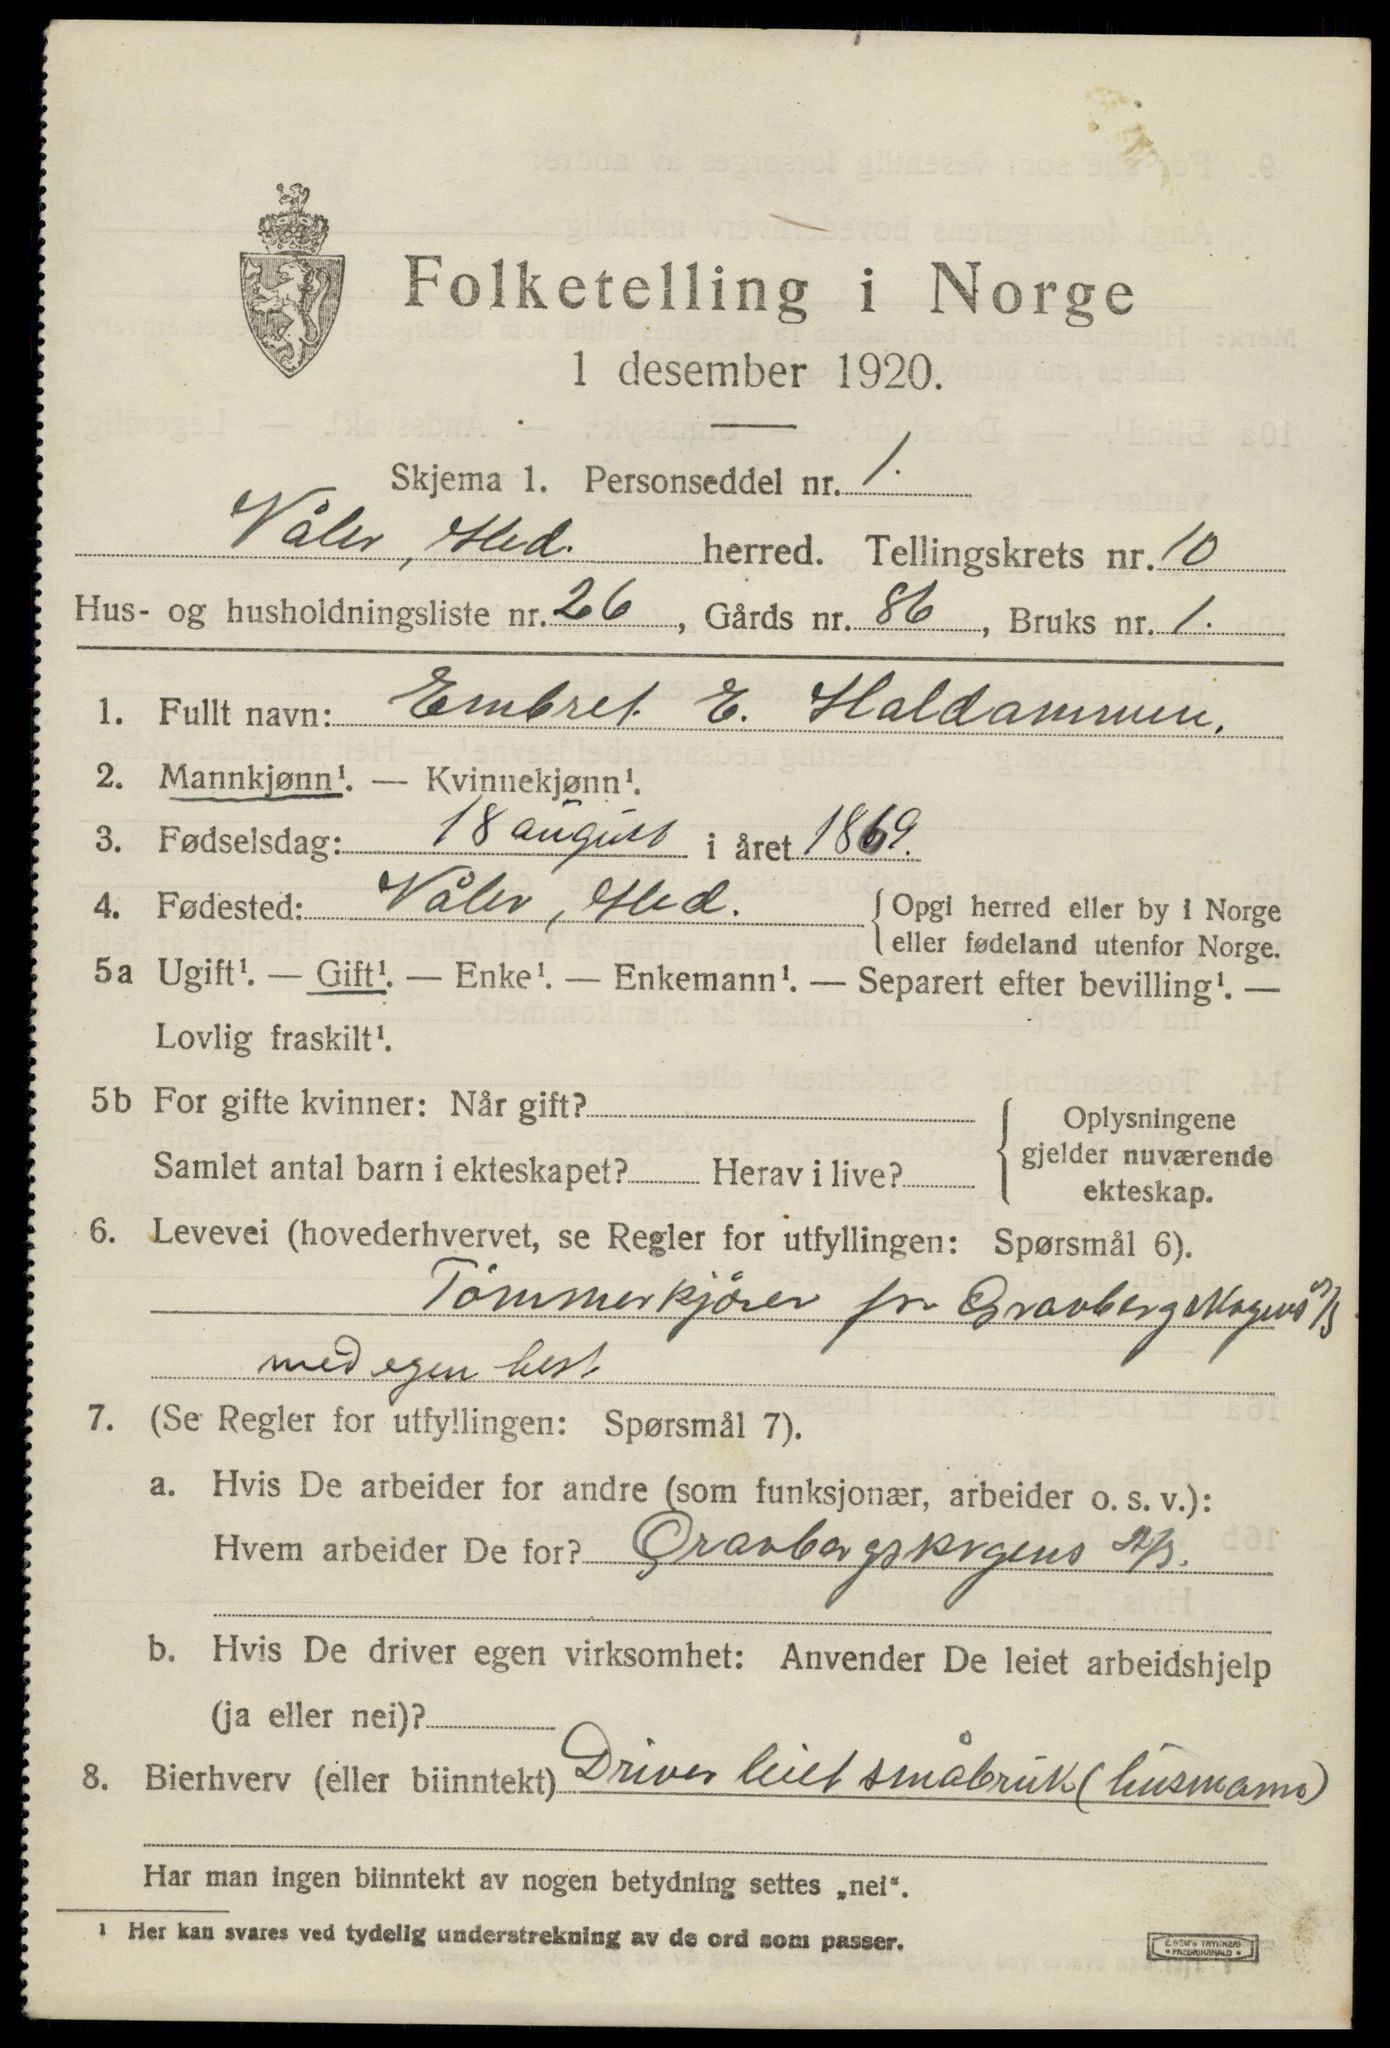 Folketelling i Norge
1 desember 1920.
Skjema 1. Personseddel nr. 1.
Våler, Hed. herred. Tellingskrets nr. 10
Hus- og husholdningsliste nr. 26, Gårds nr. 86, Bruks nr. 1.
1. Fullt navn: Embret E. Haldammen.
2. Mannkjønn¹. — Kvinnekjønn¹.
3. Fødselsdag: 18 august i året 1869.
4. Fødested: Våler, Hed. { Opgi herred eller by i Norge
eller fødeland utenfor Norge.
5a Ugift¹. — Gift¹. — Enke¹. — Enkemann¹. — Separert efter bevilling¹. —
Lovlig fraskilt¹.
5b For gifte kvinner: Når gift?
Samlet antal barn i ekteskapet? Herav i live?
{ Oplysningene
gjelder nuværende
ekteskap.
6. Levevei (hovederhvervet, se Regler for utfyllingen: Spørsmål 6).
Tömmerkjörer for Gravbergskogens A/S
med egen hest
7. (Se Regler for utfyllingen: Spørsmål 7).
a. Hvis De arbeider for andre (som funksjonær, arbeider o. s. v.):
Hvem arbeider De for? Gravbergskogens A/S.
b. Hvis De driver egen virksomhet: Anvender De leiet arbeidshjelp
(ja eller nei)?
8. Bierhverv (eller biinntekt) Driver leiet småbruk (husmann)
Har man ingen biinntekt av nogen betydning settes „nei“.
¹ Her kan svares ved tydelig understrekning av de ord som passer.